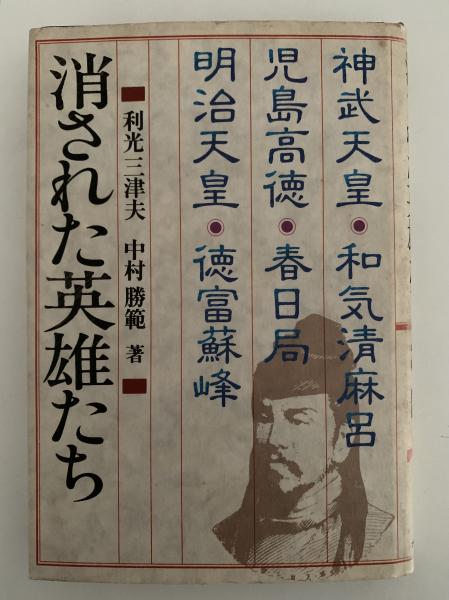 神武天皇◉和気清麻呂
児島高徳◉春日局
明治天皇◉徳富蘇峰
利光三津夫 中村勝範 著
消された英雄たち